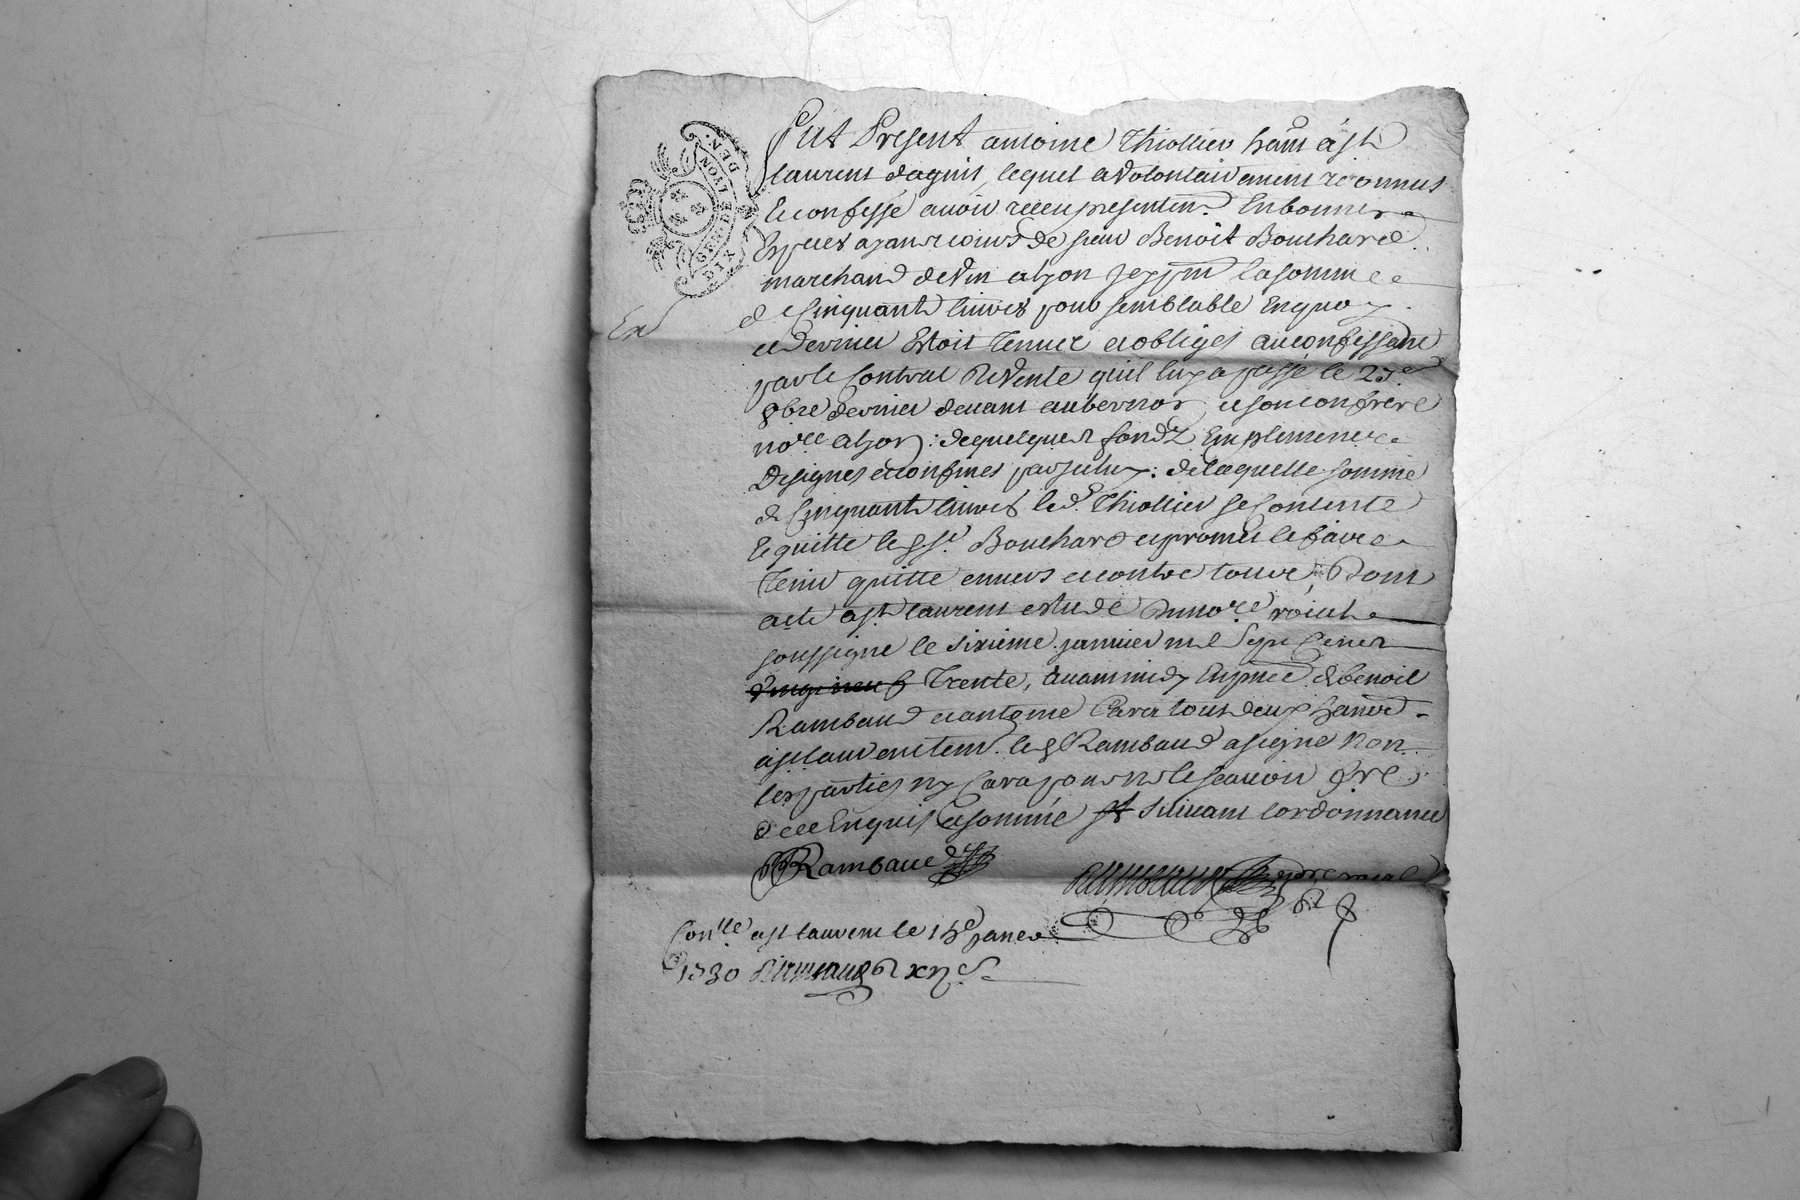 GEN. DE LYON
SIX DEN.
Fut Present antoine Thiollier hãnt a st
laurent dagnis, lequel a Volontairement reconnus
et confessé auoir receu presentem.t En bonnes
Especes ayant cours de sieur Benoit Bouchard
marchand de Vin a lyon la somme
de Cinquante liures pour semblable En quoy
ce dernier Estoit Tenue et obligés au confessant
par le Contrat de Vente quil luy a passé le 23e
9bre dernier deuant aubernon, et son confrere
nore a lyon: de quelques fondz Emplement
Designes et confines par jceluy: de laquelle somme
de Cinquante liures le d. Thiollier se Contente
En quitte le s.r Bouchard et promet le faire
Tenir quitte enuers et contre tous, Dont
acte a st laurent estude du nore roial
soussigné le sixieme januier mil Sept Cents
Trente, auant midy En pnce de benoit
Rambaud et antoine Carra tous deux
a st laurent tem. led Rambaud a signé non
les parties ny Cara pour ne le scauoir fre
de ce Enquis et sommé suiuant lordonnance
Rambaud
Conlle a st laurent le 15e janer
1730